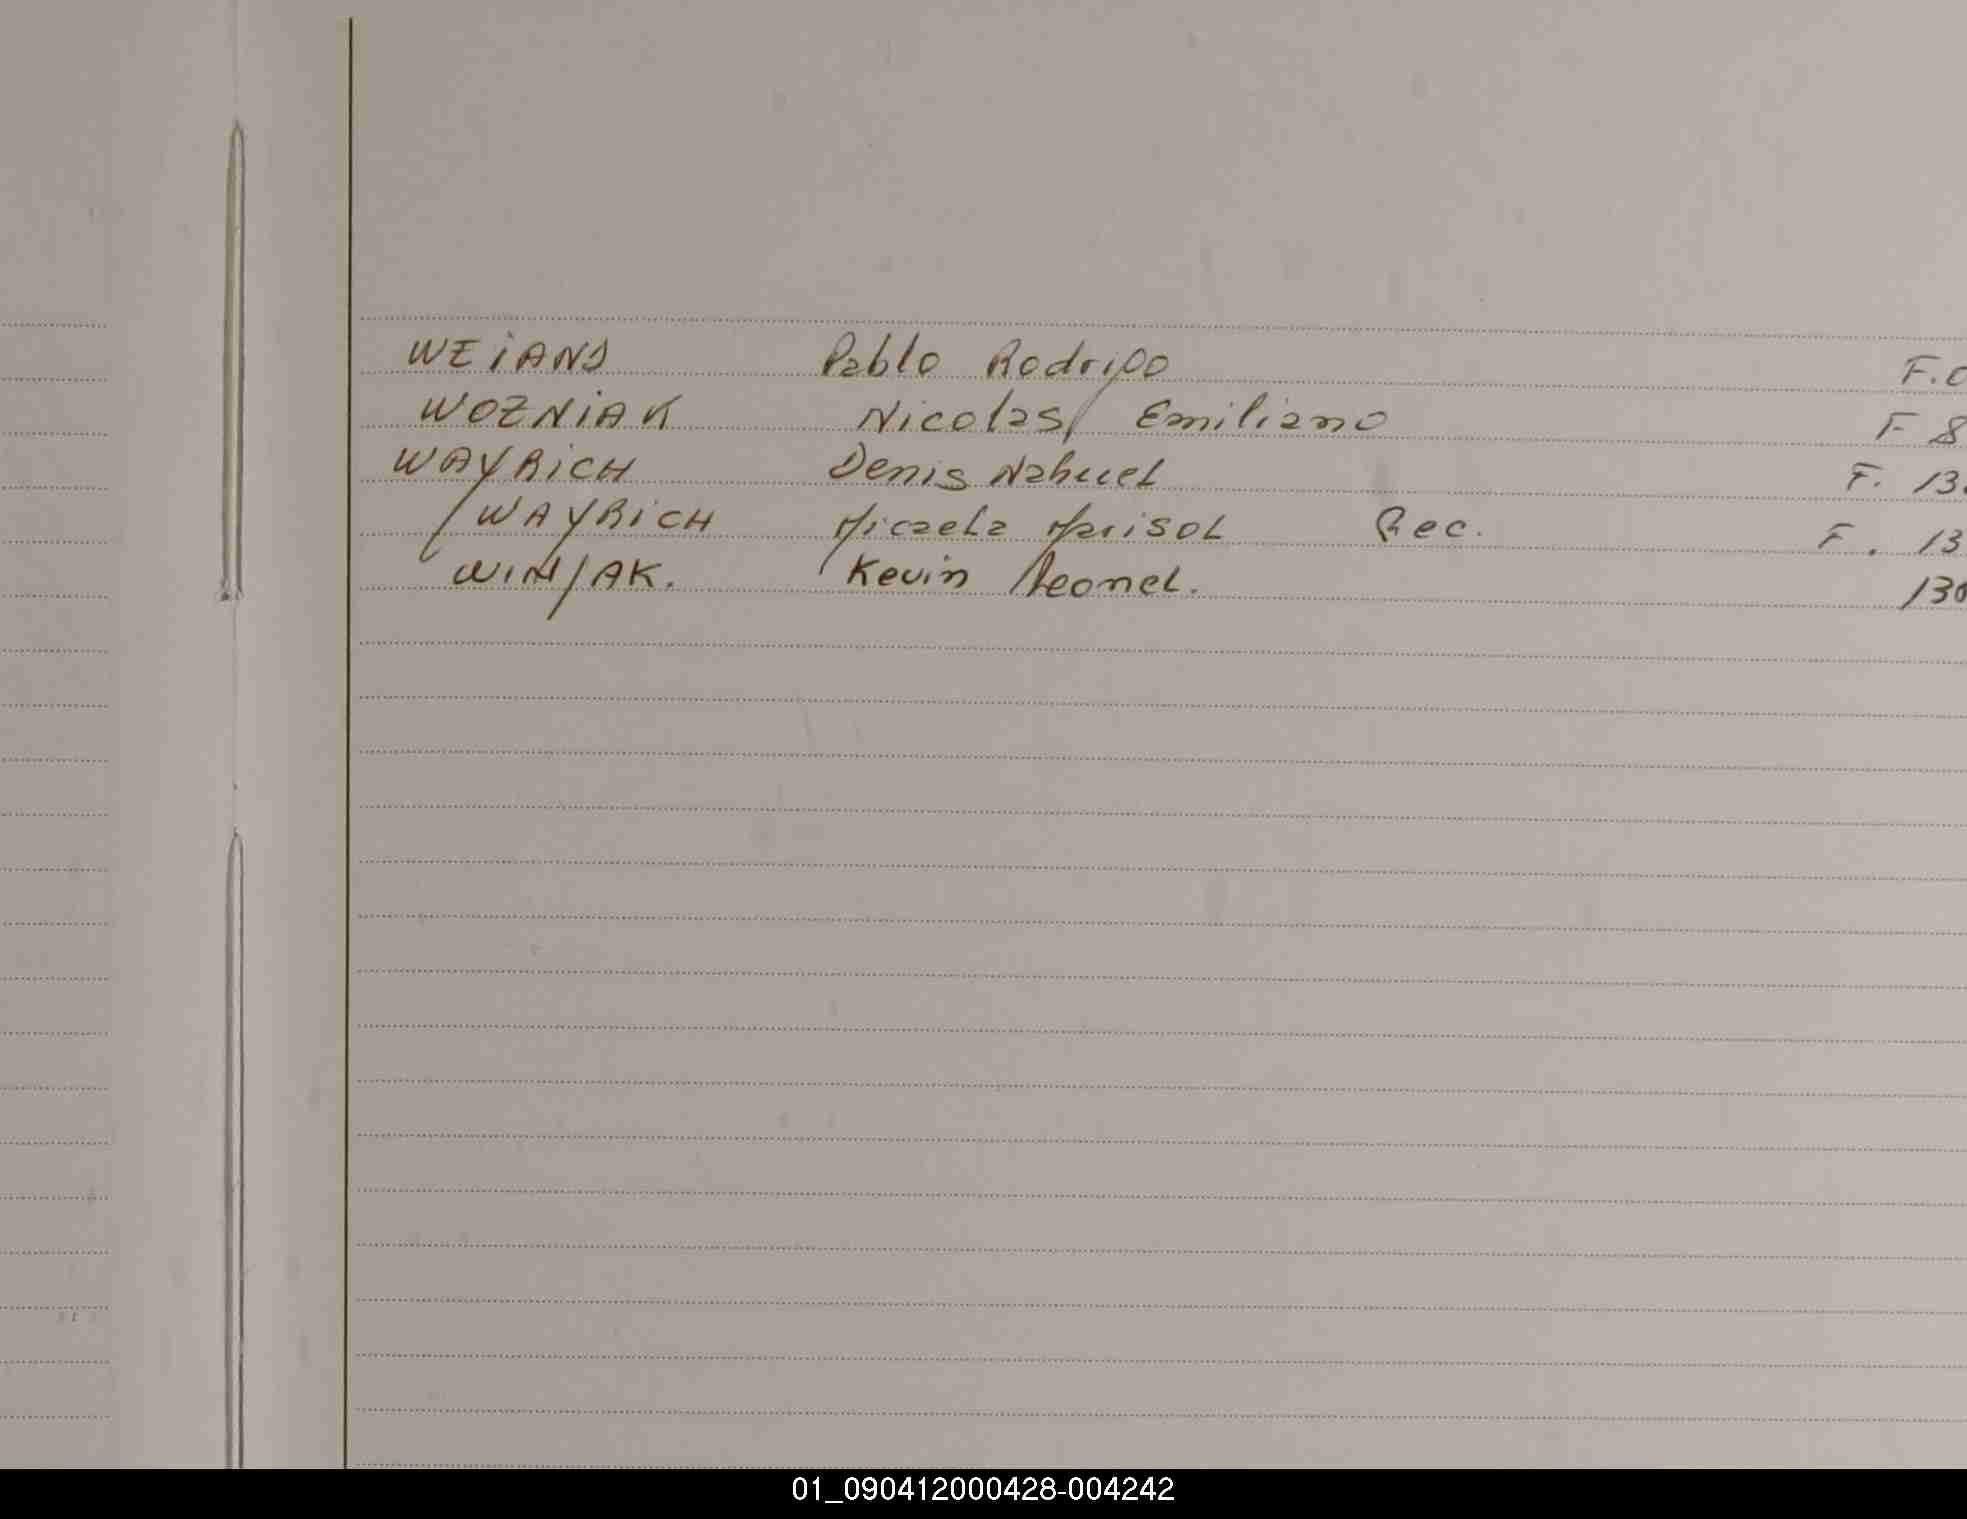 WEiANS Pablo Rodrigo F.0
WOZNiAK Nicolas Emiliano F 8
WAYRiCH Denis Nahuel F. 13
WAYRiCH Micaela Marisol Rec. F. 13
WINJAK. Kevin Leonel. 130
01_090412000428-004242